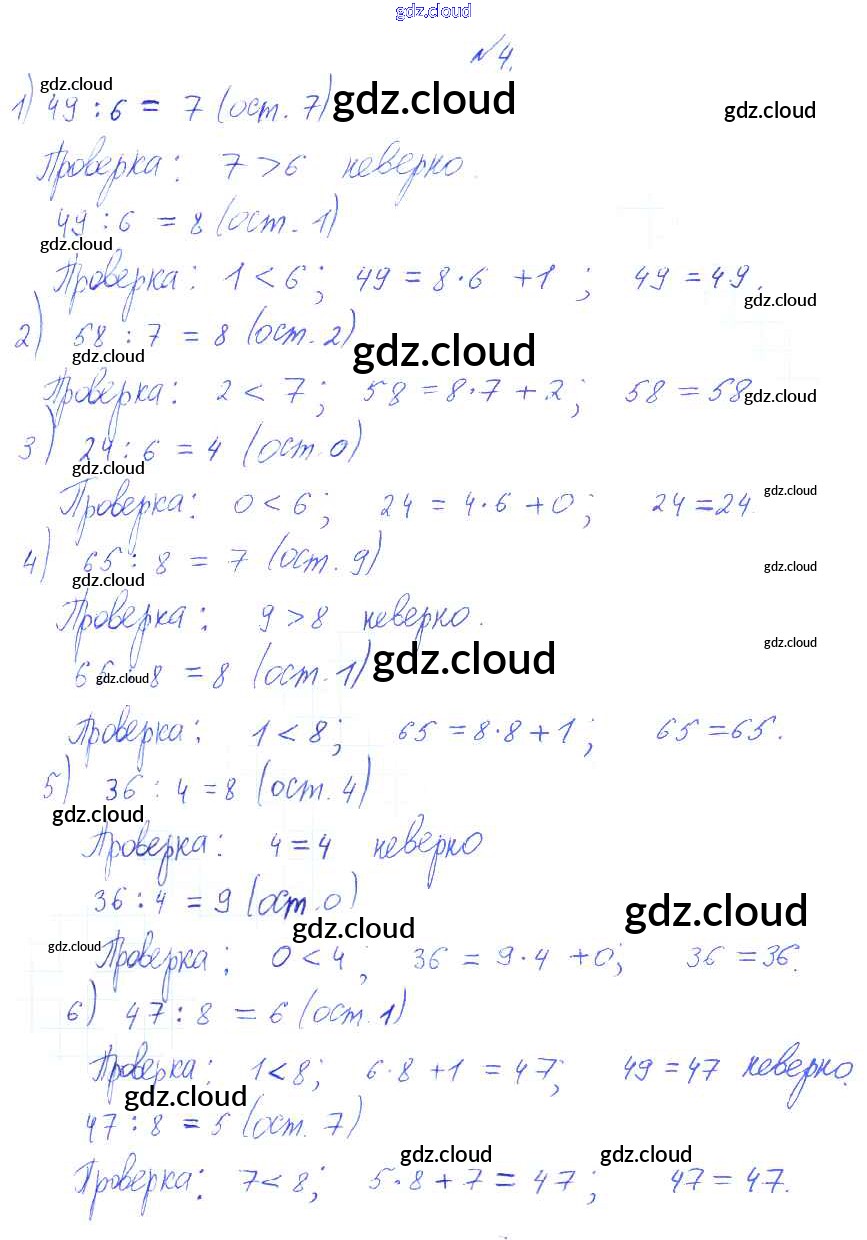 gdz.cloud
№4.
gdz.cloud
1) 49 : 6 = 7 (ост. 7) gdz.cloud gdz.cloud
Проверка: 7 > 6 неверно.
49 : 6 = 8 (ост. 1)
gdz.cloud
Проверка: 1 < 6; 49 = 8·6 + 1; 49 = 49.
gdz.cloud
2) 58 : 7 = 8 (ост. 2)
gdz.cloud gdz.cloud
Проверка: 2 < 7; 58 = 8·7 + 2; 58 = 58 gdz.cloud
3) 24 : 6 = 4 (ост. 0)
gdz.cloud
Проверка: 0 < 6; 24 = 4·6 + 0; 24 = 24.
gdz.cloud
4) 65 : 8 = 7 (ост. 9)
gdz.cloud gdz.cloud
Проверка: 9 > 8 неверно.
gdz.cloud
: 8 = 8 (ост. 1) gdz.cloud
gdz.cloud
Проверка: 1 < 8; 65 = 8·8 + 1; 65 = 65.
5) 36 : 4 = 8 (ост. 4)
gdz.cloud
Проверка: 4 = 4 неверно
36 : 4 = 9 (ост. 0)
gdz.cloud gdz.cloud
gdz.cloud
Проверка: 0 < 4; 36 = 9·4 + 0; 36 = 36.
6) 47 : 8 = 6 (ост. 1)
Проверка: 1 < 8; 6·8 + 1 = 47; 49 = 47 неверно.
gdz.cloud
47 : 8 = 5 (ост. 7)
gdz.cloud gdz.cloud
Проверка: 7 < 8; 5·8 + 7 = 47; 47 = 47.